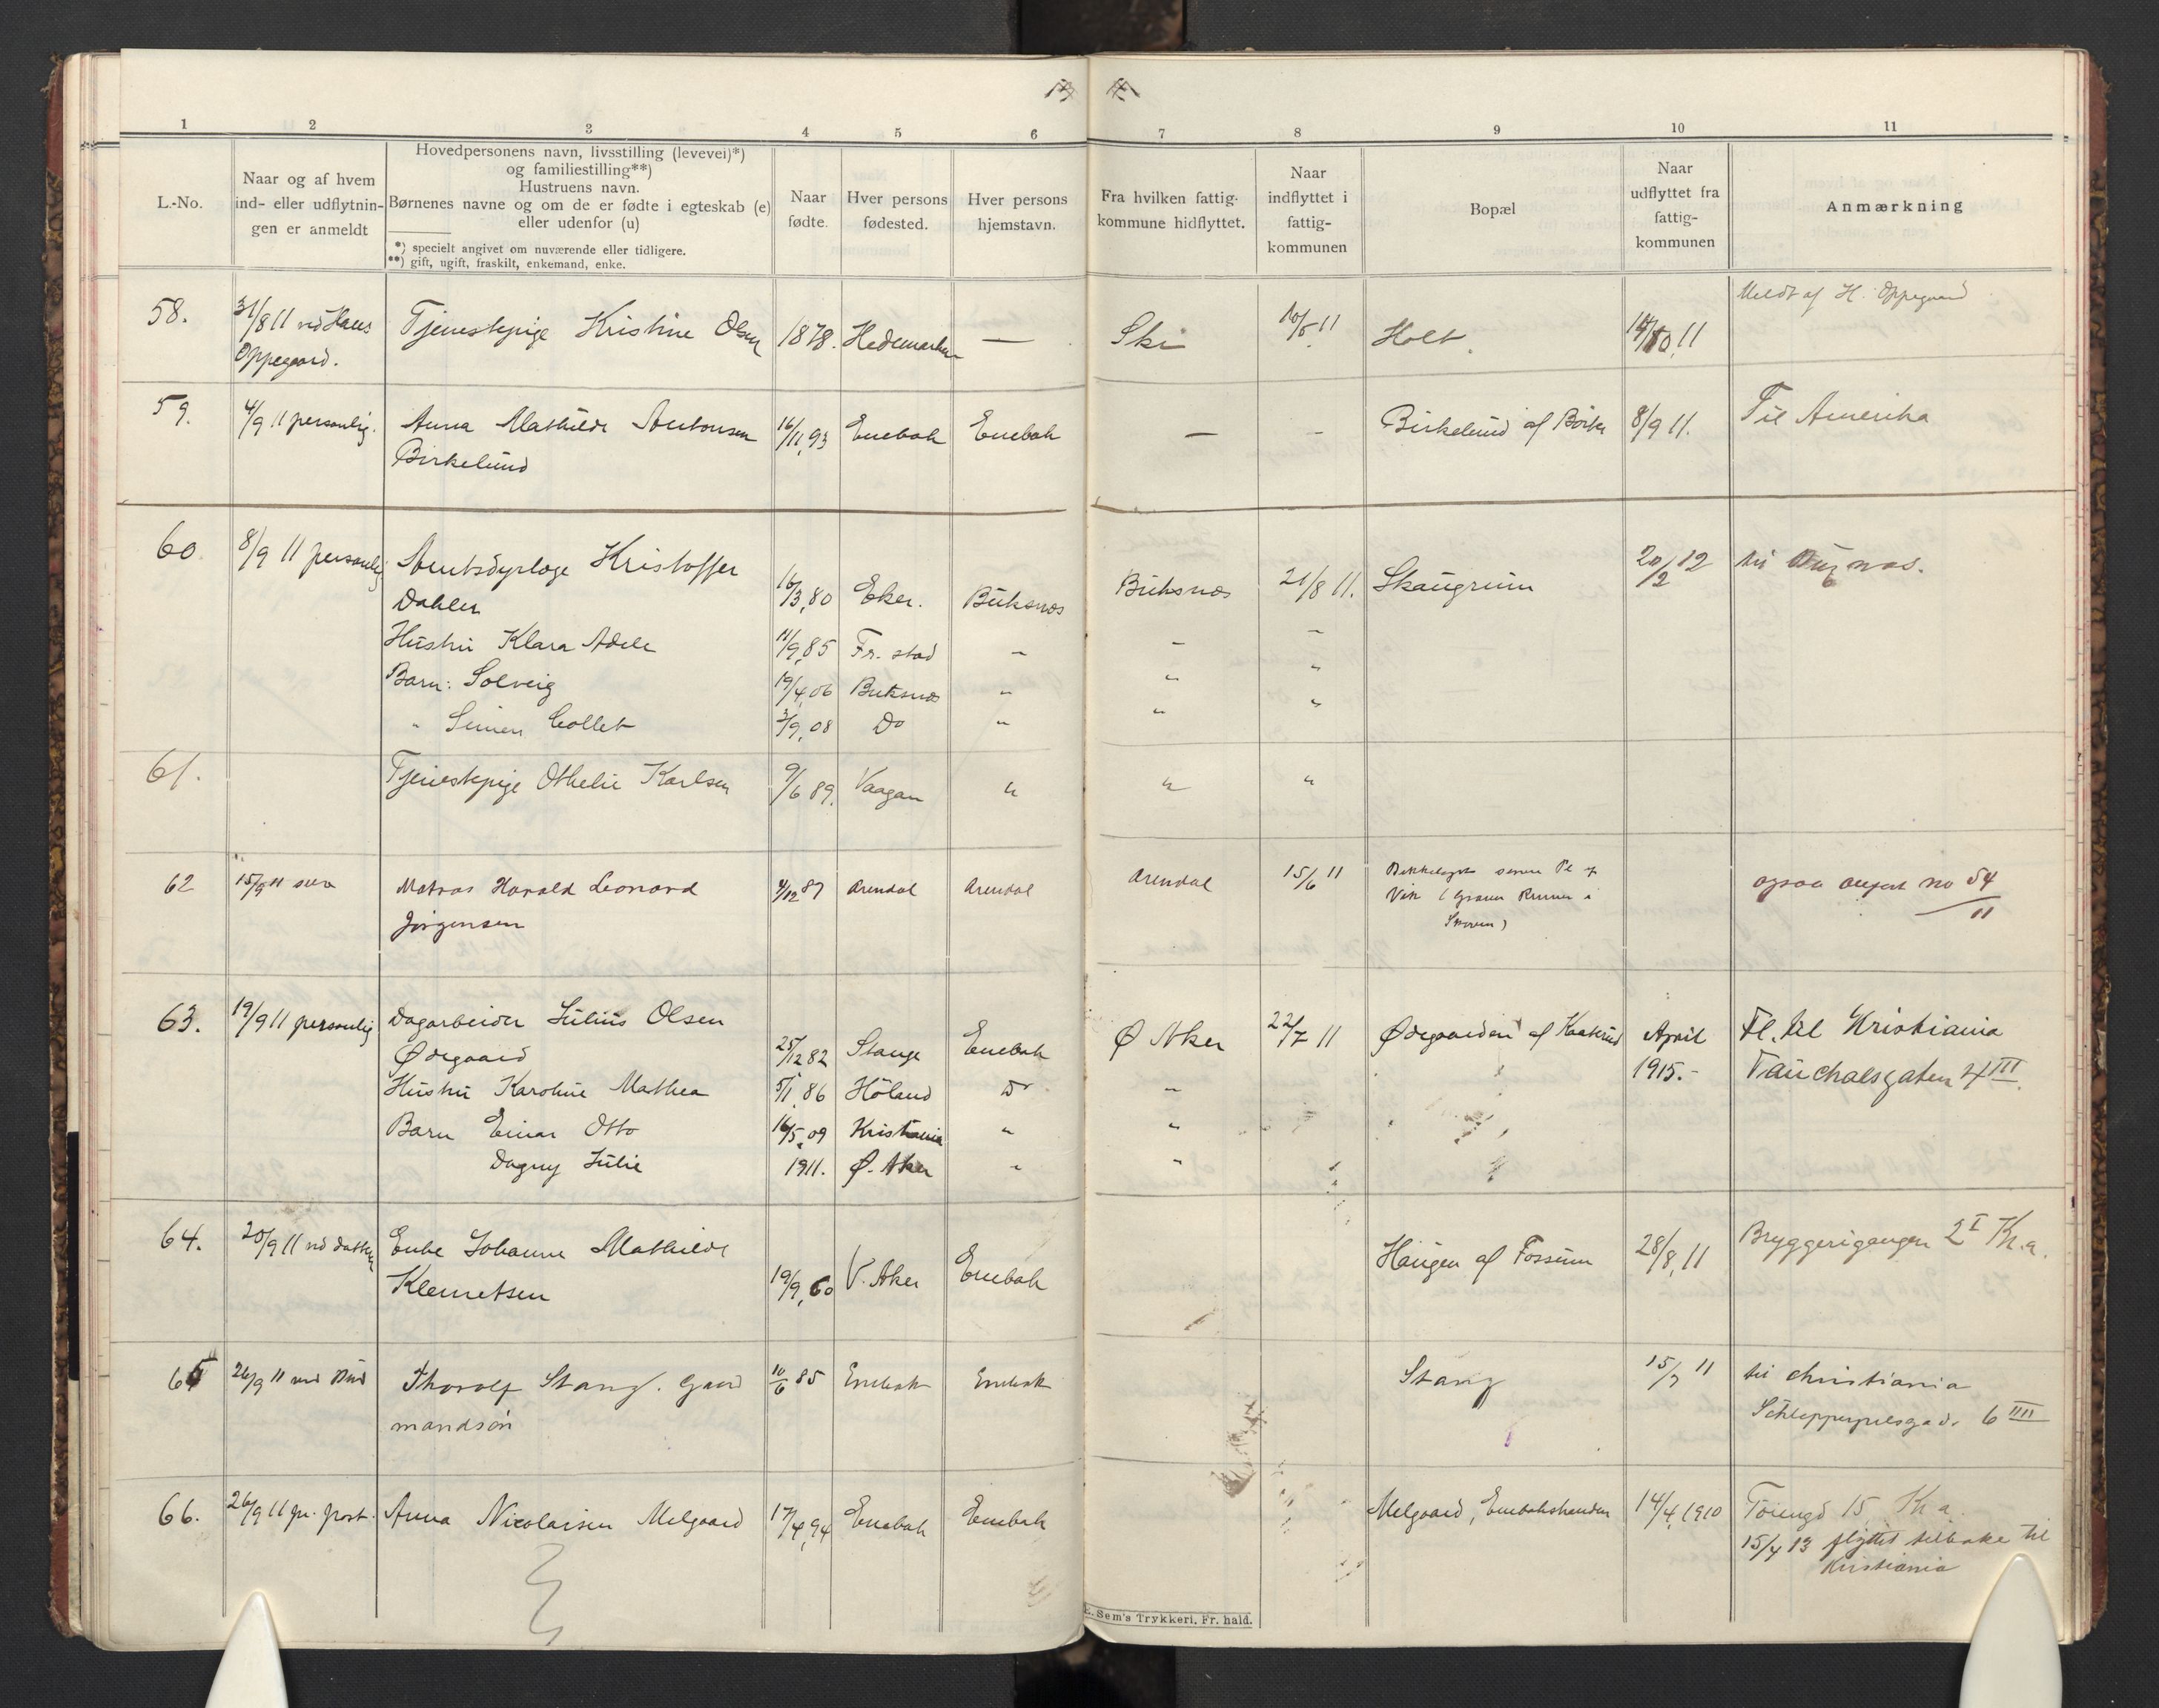 1 2 3 4 5 6 7 8 9 10 11
L.-No.
Naar og af hvem
ind- eller udflytnin-
gen er anmeldt
Hovedpersonens navn, livsstilling (levevei)*)
og familiestilling**)
Hustruens navn.
Børnenes navne og om de er fødte i egteskab (e)
eller udenfor (u)
*) specielt angivet om nuværende eller tidligere.
**) gift, ugift, fraskilt, enkemand, enke.
Naar
fødte.
Hver persons
fødested.
Hver persons
hjemstavn.
Fra hvilken fattig-
kommune hidflyttet.
Naar
indflyttet i
fattig-
kommunen
Bopæl
Naar
udflyttet fra
fattig-
kommunen
Anmærkning
Meldt af H. Oppegaard
58. 31/8 11 ved Hans Tjenestepige Kristine Olsen 1878. Hedemarken — Ski 10/5 11 Holt 14/10 11
Oppegaard.
59. 4/9 11 personlig. Anna Mathilde Antonsen 16/11 93 Enebak Enebak — – Birkelund af Börter 8/9 11. Til Amerika
Birkelund
60 8/9 11 personlig Amtsdyrlæge Kristoffer
Dahlen 16/3 80 Eker. Buksnes Buksnes 21/8 11. Skaugrum 20/2 12 til Buxnes.
Hustru Klara Adele 11/9 85 Fr. stad – – –
Barn: Solveig 19/4 06 Buksnes " " "
" Simen Collet 3/9 08 Do " " "
61. Tjenestepige Othelie Karlsen 9/6 89. Vaagan " " "
62 15/9 11 Matros Harald Leonard 4/12 87 Arendal Arendal Arendal 15/6 11
Jörgensen
Vik
ogsaa no 54/11
63. 19/9 11 personlig Dagarbeider Julius Olsen
Ødegaard 25/12 82 Stange Enebak Ø Aker 22/7 11 Ødegaarden af Kaaterud April Fl. til Kristiania
1915.-
Hustru Karoline Mathea 5/1 86 Höland Do –
Barn Einar Otto 16/5 09 Kristiania " "
Dagny Julie 1911. Ø. Aker " "
64. 20/9 11 ved datter Enke Johanne Mathilde
Klemetsen 19/9 60 V. Aker Enebak Haugen af Fossum 28/8 11 Bryggerigangen 2 I Kr.a.
65 26/9 11 ved Bud Thorolf Stang. Gaard 10/6 85 Enebak Enebak Stang 15/7 11 til Christiania
mandsön Schleppegrelsgad. 6 IIII
66. 26/9 11 pr. post. Anna Nicolaisen Melgaard 17/4 94 Enebak Enebak Melgaard, Enebakshanden 14/4 1910 15 Kr a.
15/4 13 flyttet tilbake til
Kristiania
E. Sem's Trykkeri, Fr. hald.